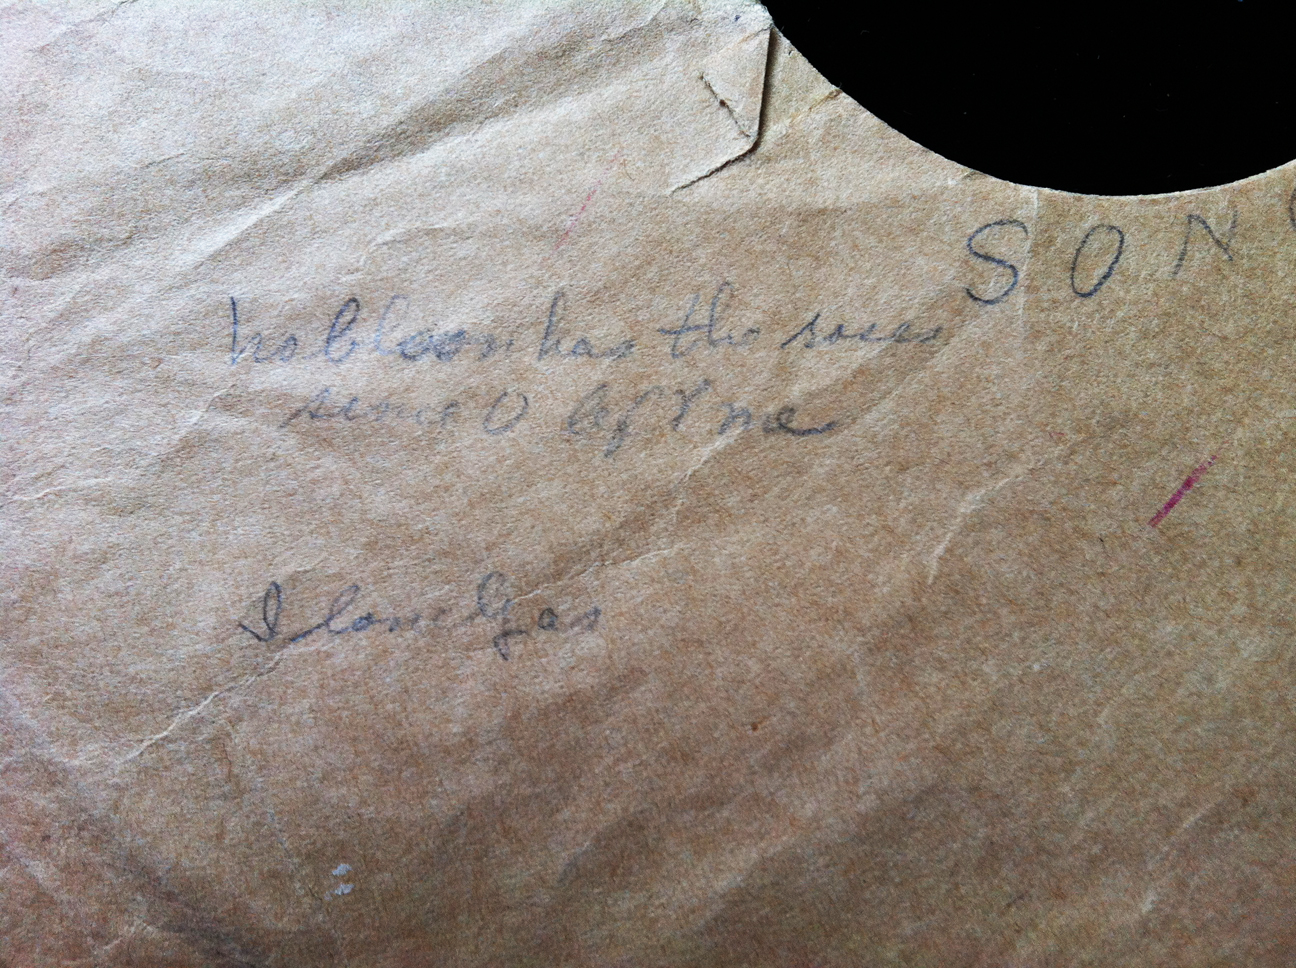 SON
no bloom has the roses
since U left me
I love Gas